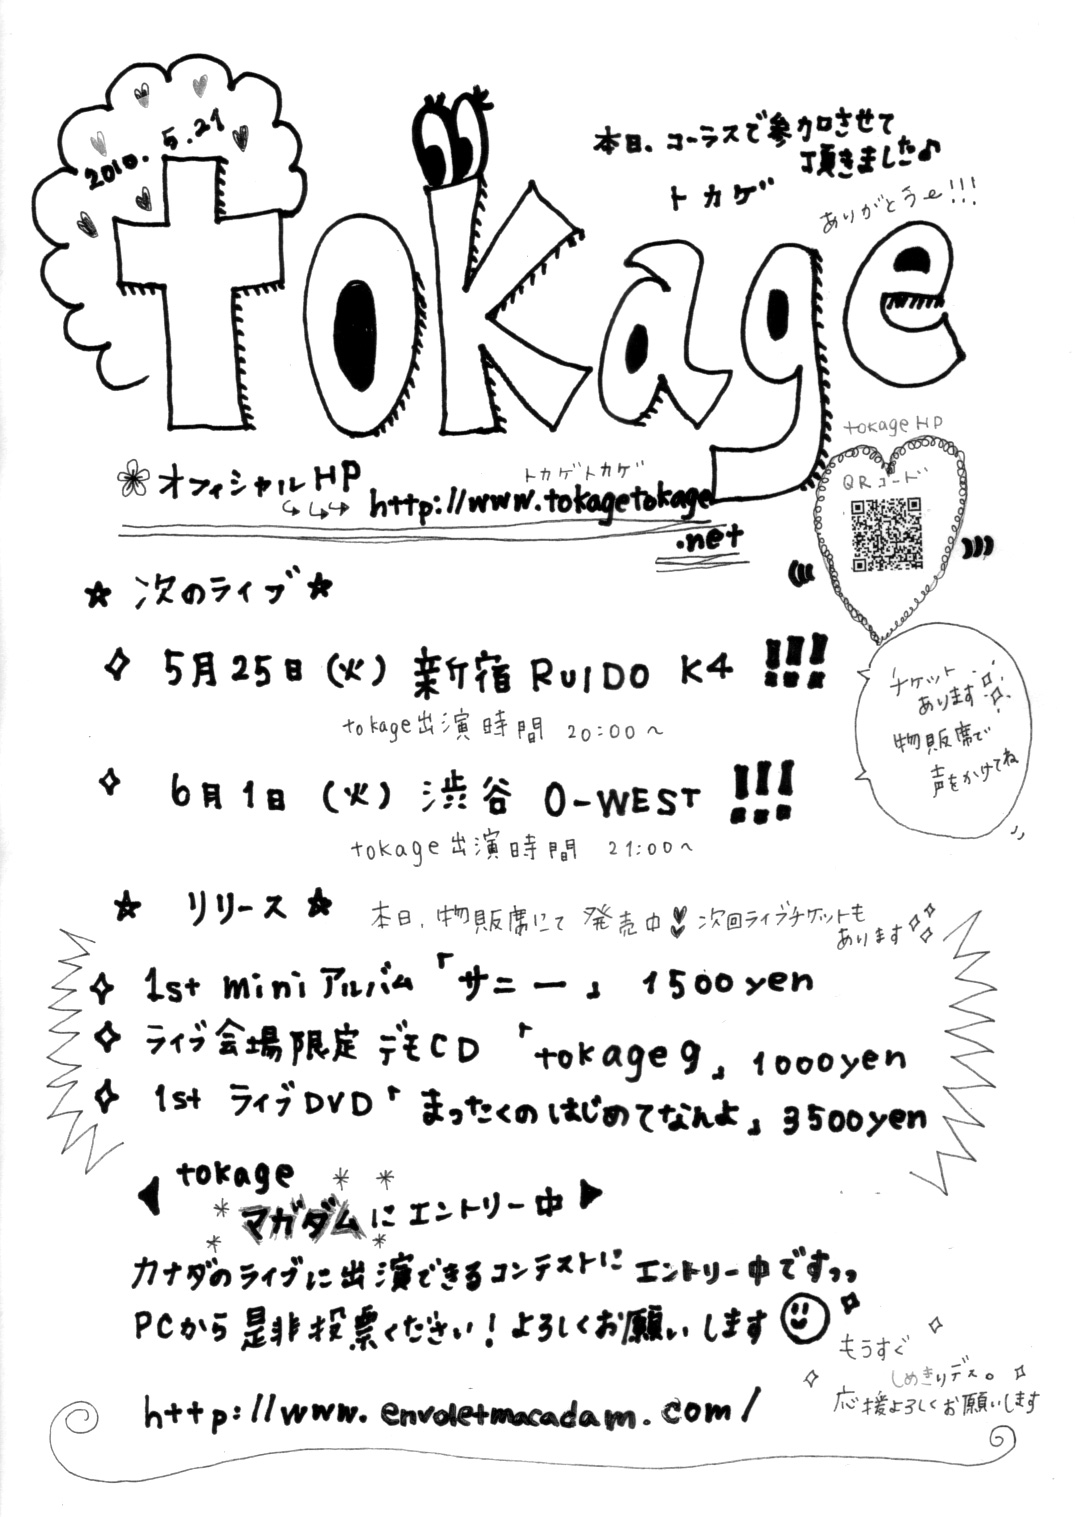 2010. 5.21
本日、コーラスで参加させて
頂きました♪
トカゲ
ありがとうe!!!
tokage
tokage HP
QRコード
オフィシャルHP
トカゲトカゲ
http://www.tokagetokage
.net
☆ 次のライブ ☆
5月25日(火) 新宿 RUIDO K4 !!!
tokage出演時間 20:00〜
チケット
あります
物販席で
声をかけてね
6月1日 (火) 渋谷 O-WEST !!!
tokage出演時間 21:00〜
☆ リリース ☆
本日、物販席にて 発売中 次回ライブチケットも
あります
1st mini アルバム「サニー」 1500yen
ライブ会場限定 デモCD 「tokage9」 1000yen
1st ライブDVD「まったくのはじめてなんよ」3500yen
tokage
マガダムにエントリー中
カナダのライブに出演できるコンテストにエントリー中ですっっ
PCから是非投票ください!よろしくお願いします
もうすぐ
しめきりデス。
応援よろしくお願いします
http://www.envoletmacadam.com/